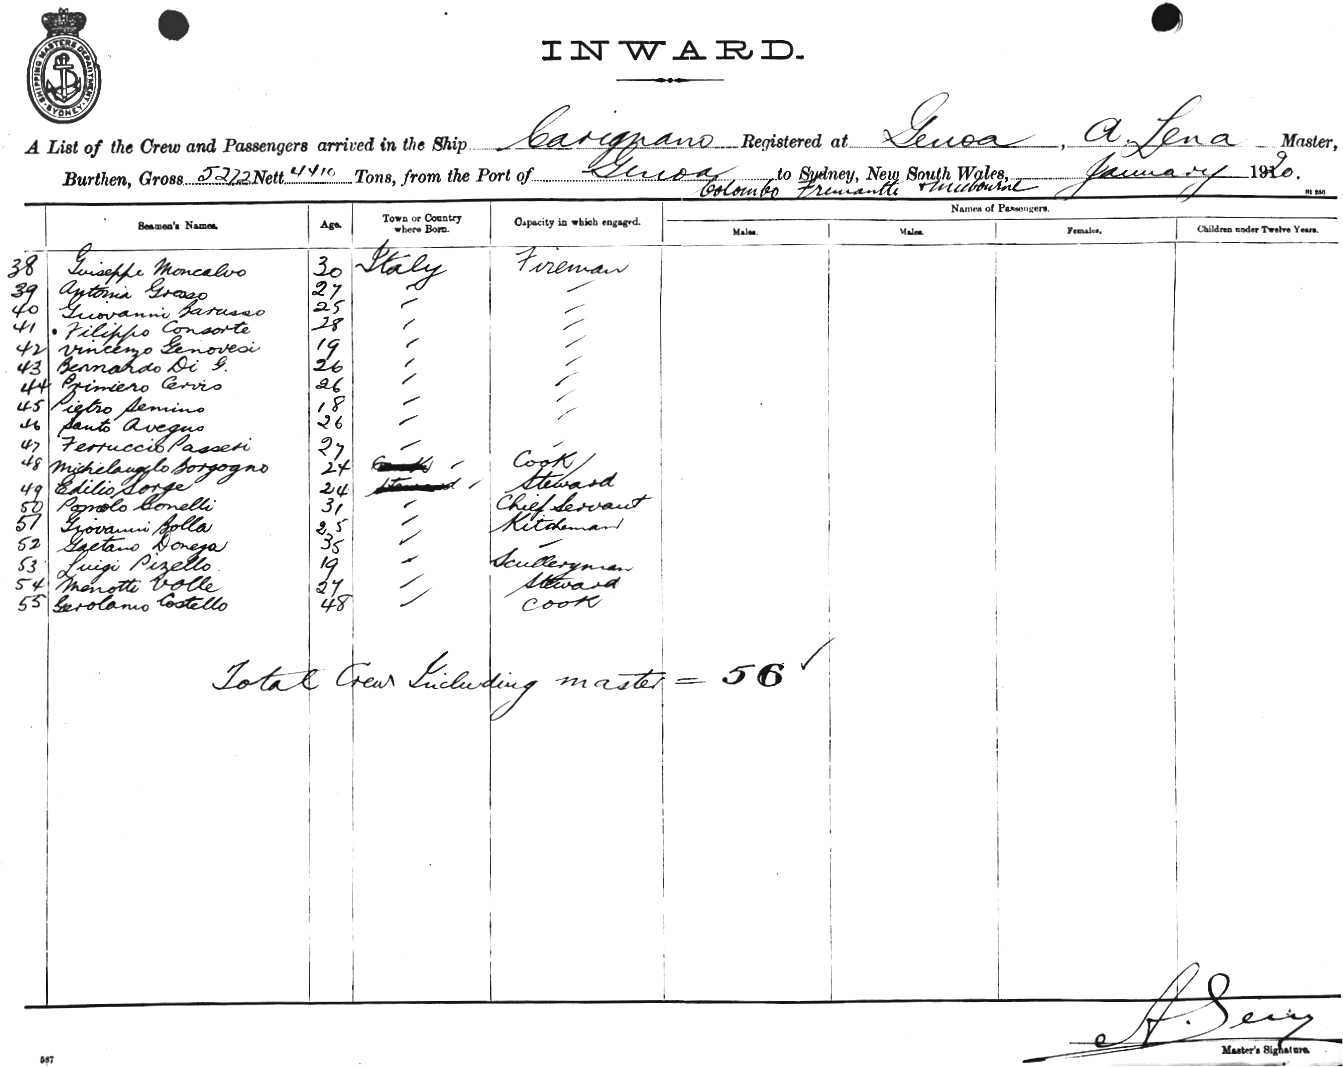 SHIPPING MASTERS DEPARTMENT SYDNEY
INWARD.
A List of the Crew and Passengers arrived in the Ship Carignano Registered at Genoa, A. Lena Master,
Burthen, Gross 5212 Nett 4410 Tons, from the Port of Genoa to Sydney, New South Wales, January 1920.
Colombo Fremantle & Melbourne
Seamen's Names. Age. Town or Country where Born. Capacity in which engaged. Names of Passengers.
Males. Males. Females. Children under Twelve Years.
38 Guiseppe Moncalvo 30 Italy Fireman
39 Antonia Grosso 27 " "
40 Giovanni Barusso 25 " "
41 Filippo Consorte 28 " "
42 Vincenzo Genovesi 19 " "
43 Bernardo Di G. 26 " "
44 Primiero Cervis 26 " "
45 Pietro Semino 18 " "
46 Santo Avegno 26 " "
47 Ferruccio Passeri 27 " "
48 Michelangelo Borgogno 24 " Cook
49 Edilio Sorge 24 " Steward
50 Gonelli 31 " Chief Servant
51 Giovanni Bolla 25 " Kitchenman
52 Gaetano Donega 35 " "
53 Luigi Pizello 19 " Sculleryman
54 Menotti Valle 27 " Steward
55 Gerolamo Costello 48 " Cook
Total Crew Including master = 56 ✓
A. Lena
Master's Signature.
587